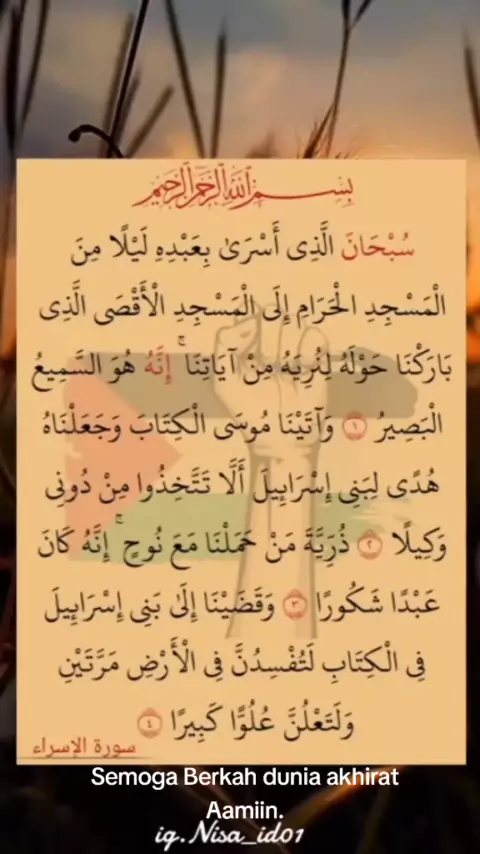 بِسْمِ اللَّهِ الرَّحْمَٰنِ الرَّحِيمِ
سُبْحَانَ الَّذِى أَسْرَىٰ بِعَبْدِهِ لَيْلًا مِنَ
الْمَسْجِدِ الْحَرَامِ إِلَى الْمَسْجِدِ الْأَقْصَى الَّذِى
بَارَكْنَا حَوْلَهُ لِنُرِيَهُ مِنْ آيَاتِنَا ۚ إِنَّهُ هُوَ السَّمِيعُ
الْبَصِيرُ ١ وَآتَيْنَا مُوسَى الْكِتَابَ وَجَعَلْنَاهُ
هُدًى لِبَنِى إِسْرَابِيلَ أَلَّا تَتَّخِذُوا مِنْ دُونِى
وَكِيلًا ٢ ذُرِّيَّةَ مَنْ حَمَلْنَا مَعَ نُوحٍ ۚ إِنَّهُ كَانَ
عَبْدًا شَكُورًا ٣ وَقَضَيْنَا إِلَىٰ بَنِى إِسْرَابِيلَ
فِى الْكِتَابِ لَتُفْسِدُنَّ فِى الْأَرْضِ مَرَّتَيْنِ
وَلَتَعْلُنَّ عُلُوًّا كَبِيرًا ٤
سورة الإسراء
Semoga Berkah dunia akhirat
Aamiin.
ig.Nisa_id01